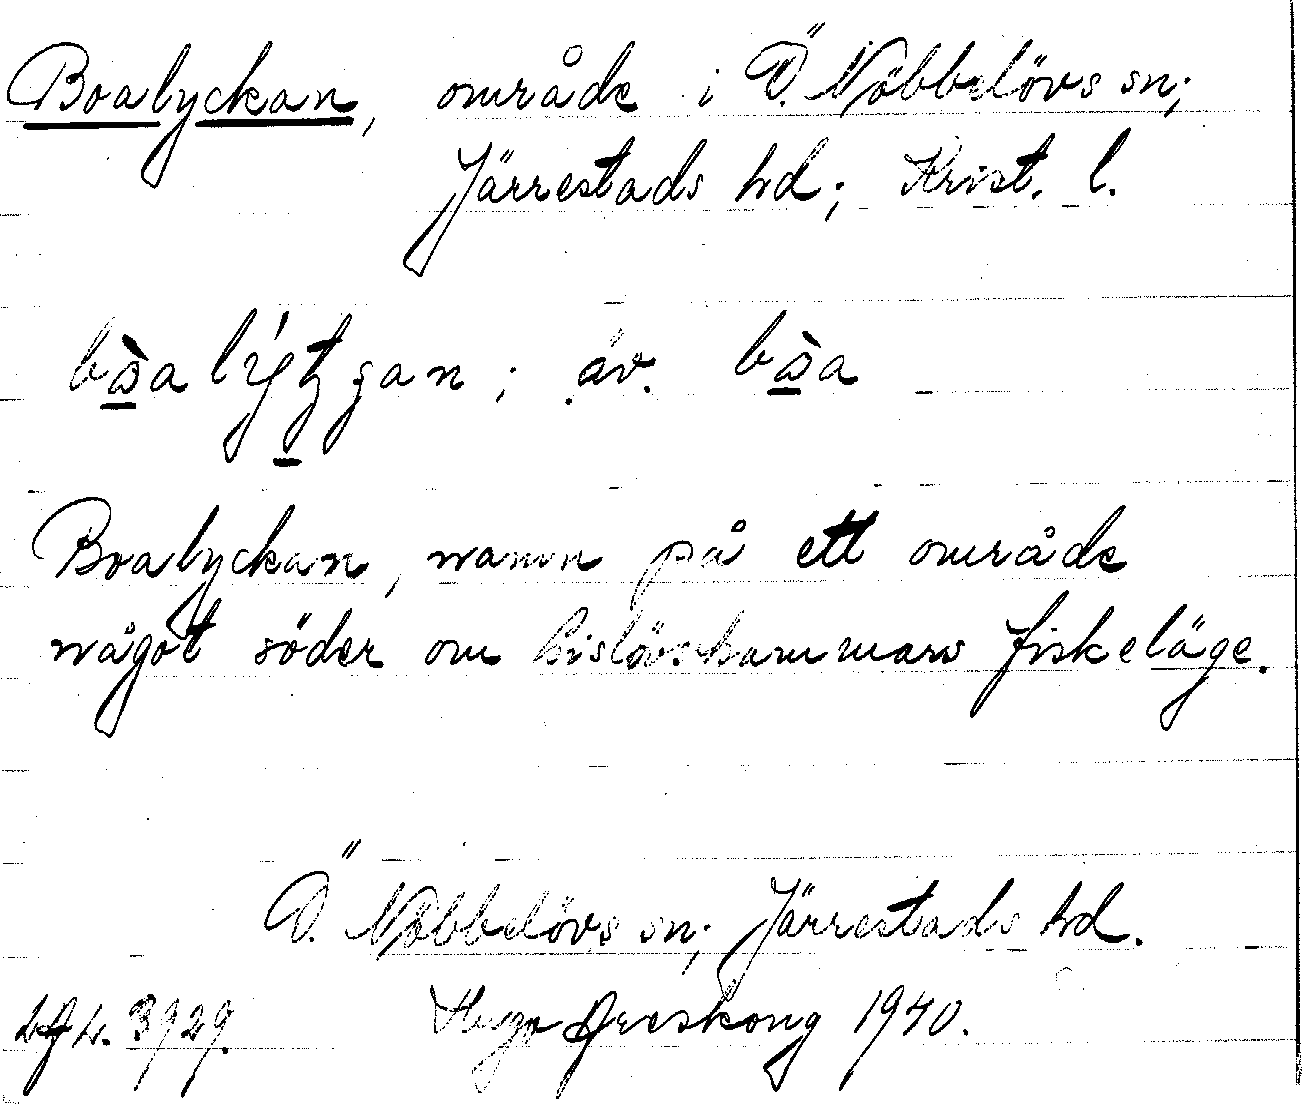 Boalyckan, område i Ö. Nöbbelövs sn;
Järrestads hd; Krist. l.
; äv.
Boalyckan, namn på ett område
något söder om Kislövshammars fiskeläge.
Ö. Nöbbelövs sn; Järrestads hd.
3929. Hugo Areskoug 1940.